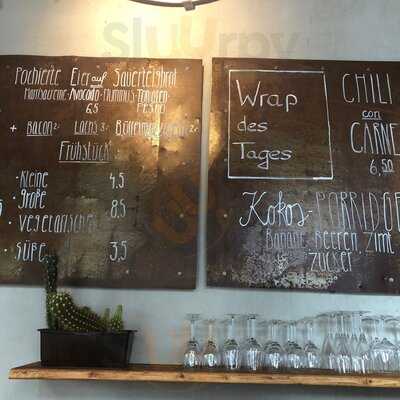 Pochierte Eier auf Sauerteigbrot
Avocado Hummus Tomaten
6,5 Pesto
+ Bacon 2.- Lachs 3.- 2.-
Frühstück
- Kleine 4,5
- Große 8,5
- Vegetarisches
- Süße 3,5
Wrap
des
Tages
CHILI
con
CARNE
6,50
Kokos-PORRIDGE
Banane Beeren Zimt
Zucker